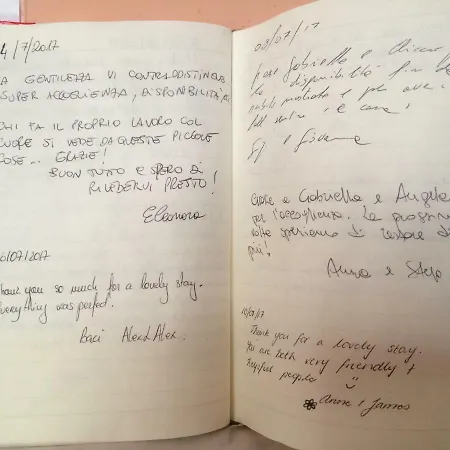 4/7/2017
LA GENTILEZZA VI CONTRADDISTINGUE
SUPER ACCOGLIENZA, DISPONIBILITÀ
CHI FA IL PROPRIO LAVORO COL
CUORE SI VEDE DA QUESTE PICCOLE
COSE... GRAZIE!
BUON TUTTO E SPERO DI
RIVEDERVI PRESTO!
Eleonora
10/07/2017
Thank you so much for a lovely stay.
Everything was perfect.
Baci Alex & Alex.
08/07/17
Gabriella e
la disponibilità
e
casa!
Grazie a Gabriella e Angelo
per l'accoglienza. La prossima
volta speriamo di restare di
più!
Anna e
Thank you for a lovely stay.
You are both very friendly +
helpful people
Anne & James